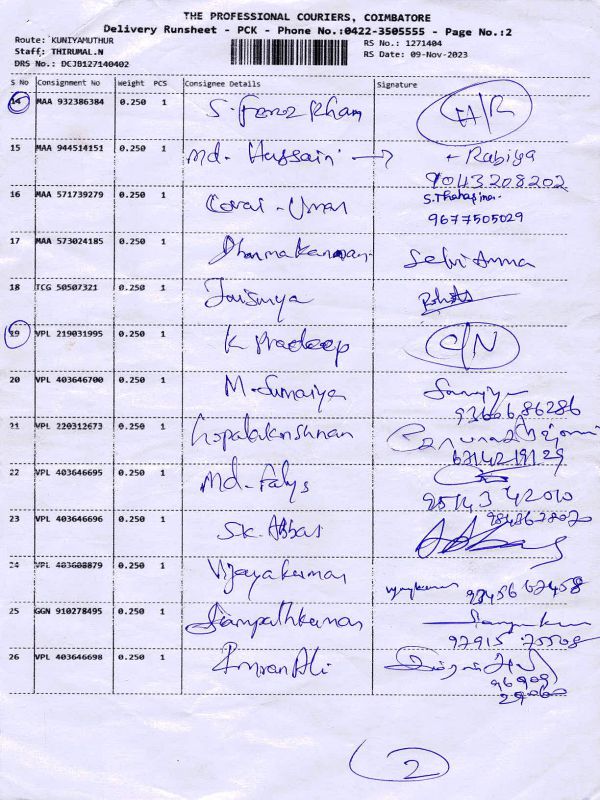 THE PROFESSIONAL COURIERS, COIMBATORE
Delivery Runsheet - PCK - Phone No.:0422-3505555 - Page No.:2
Route: 'KUNIYAMUTHUR
RS No.: 1271404
Staff: THIRUMAL.N
RS Date: 09-Nov-2023
DRS No.: DCJB127140402
S No Consignment No Weight PCS Consignee Details Signature
14 MAA 932386384 0.250 1 S. Feroz Khan
15 MAA 944514151 0.250 1 Md. Hussain → Rabiya
9043208202
16 MAA 571739279 0.250 1 Umar
9677505029
17 MAA 573024185 0.250 1 Selvi Amma
18 TCG 50507321 0.250 1 Jaisurya
19 VPL 219031995 0.250 1 K Pradeep
20 VPL 403646700 0.250 1 M. Sumaiya
21 VPL 220312673 0.250 1 Gopalakrishnan
22 VPL 403646695 0.250 1 Md. Falys
23 VPL 403646696 0.250 1 SK. Abbas Abbas
24 VPL 403608879 0.250 1 Vijayakumar Vijaykumar
25 GGN 910278495 0.250 1 Sampathkumar
26 VPL 403646698 0.250 1 Imran Ali
2